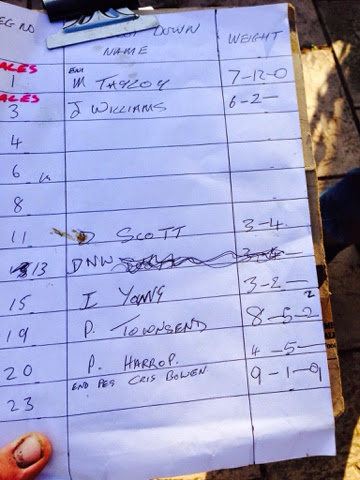 EG NO DOWN
NAME WEIGHT
ALES
1 END M TAYLOR 7-12-0
ALES
3 J WILLIAMS 6-2-
4
6
8
11 D SCOTT 3-4-
13 DNW
15 I YOUNG 3-2-
19 D. TOWNSEND 8-5-2
20 P. HARROP 4-5-
END PEG CRIS BOWEN 9-1-9
23